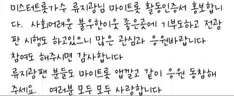 미스터트롯가수 류지광님 마이트롯 활동인증서 홍보합니
다. 사회어려운 불우한이웃 좋은곳에 기부도하고 전광
판 시행도 하고있으니 많은 관심과 응원바랍니다
참여도 해주시면 감사합니다
류지광팬 분들도 마이트롯 앱깔고 같이 응원 동참해
주세요. 여러분 모두 모두 사랑합니다